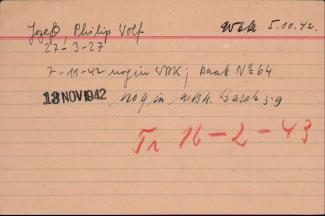 Jozef, Philip Wolf Wbk 5.10.42.
27-3-27
7-11-42 nog in WBK; Barak No 64
13 NOV 1942 nog in WBK. Barak 59
Tr 16-2-43